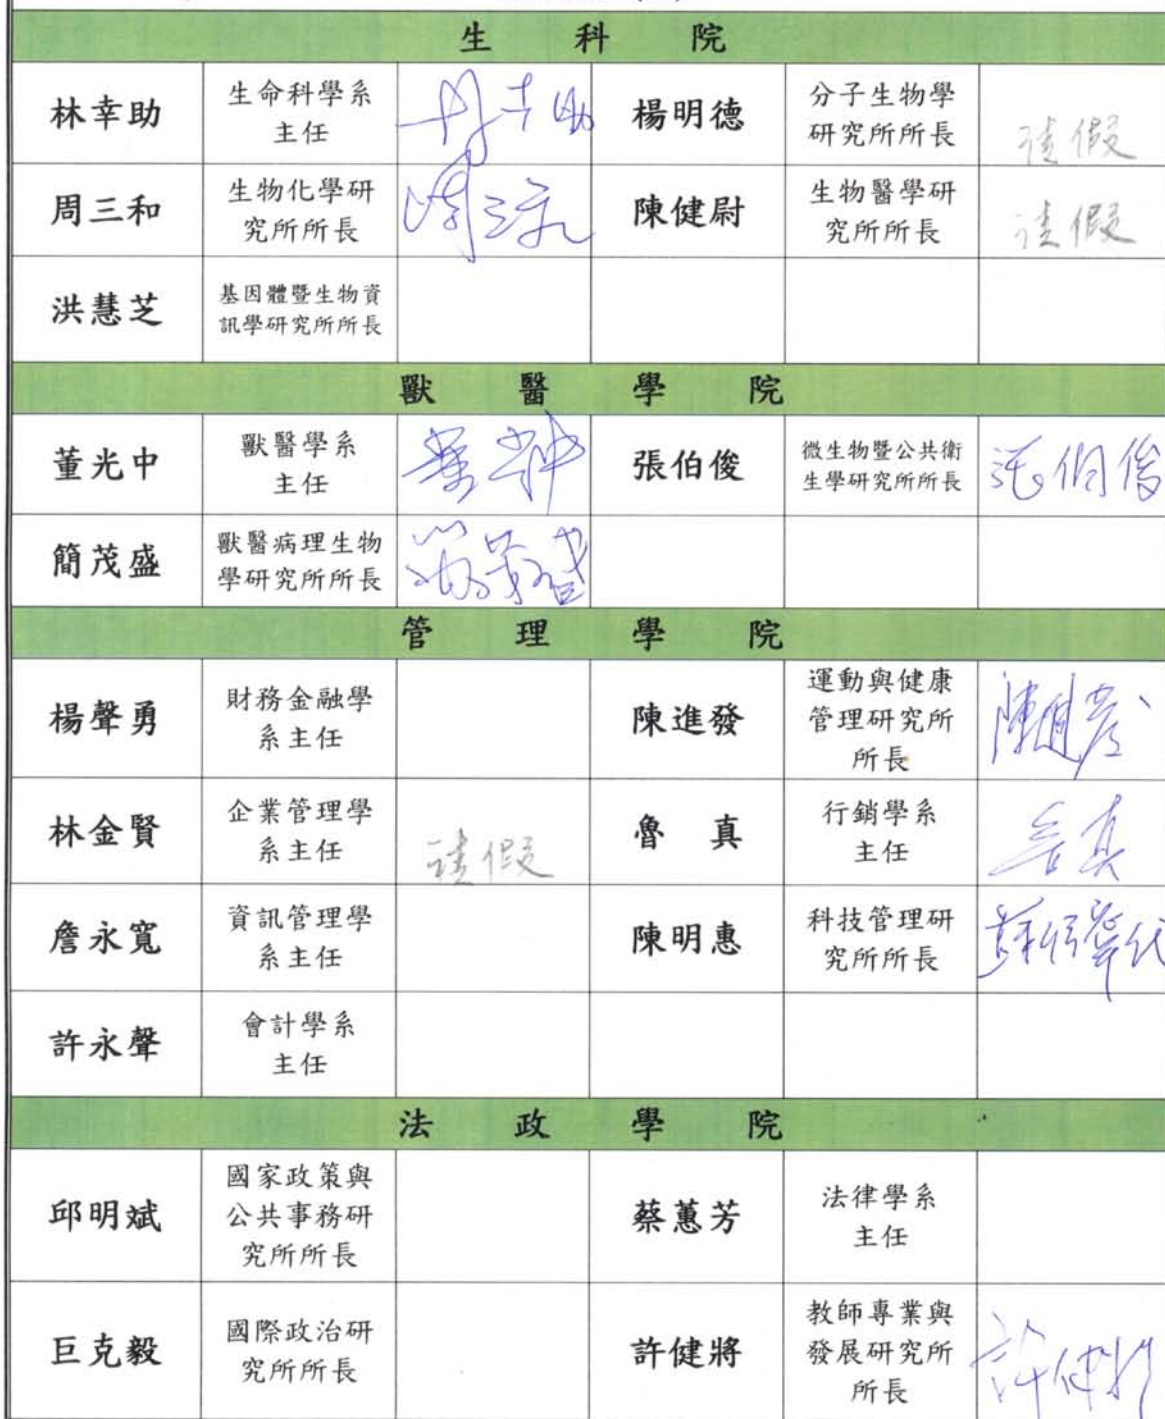 生科院
林幸助
生命科學系
主任
林幸助
楊明德
分子生物學
研究所所長
請假
周三和
生物化學研
究所所長
周三和
陳健尉
生物醫學研
究所所長
請假
洪慧芝
基因體暨生物資
訊學研究所所長
獸醫學院
董光中
獸醫學系
主任
董光中
張伯俊
微生物暨公共衛
生學研究所所長
張伯俊
簡茂盛
獸醫病理生物
學研究所所長
簡茂盛
管理學院
楊聲勇
財務金融學
系主任
陳進發
運動與健康
管理研究所
所長
林金賢
企業管理學
系主任
請假
魯真
行銷學系
主任
魯真
詹永寬
資訊管理學
系主任
陳明惠
科技管理研
究所所長
許永聲
會計學系
主任
法政學院
邱明斌
國家政策與
公共事務研
究所所長
蔡蕙芳
法律學系
主任
巨克毅
國際政治研
究所所長
許健將
教師專業與
發展研究所
所長
許健將